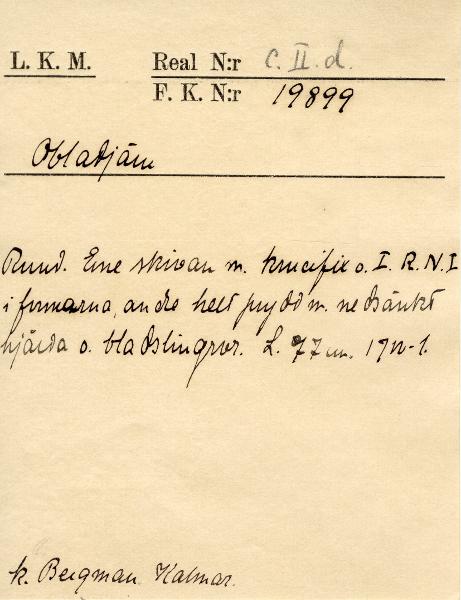 L. K. M. Real N:r C. II. d.
F. K. N:r 19899
Obladjärn
Rund. Ene skivan m. krucifix o. I. R. N. I
i formarna, andre helt prydd m. nedsänkt
hjärta o. bladslingror. L. 77 cm. 1700-t.
k. Bergman Kalmar.